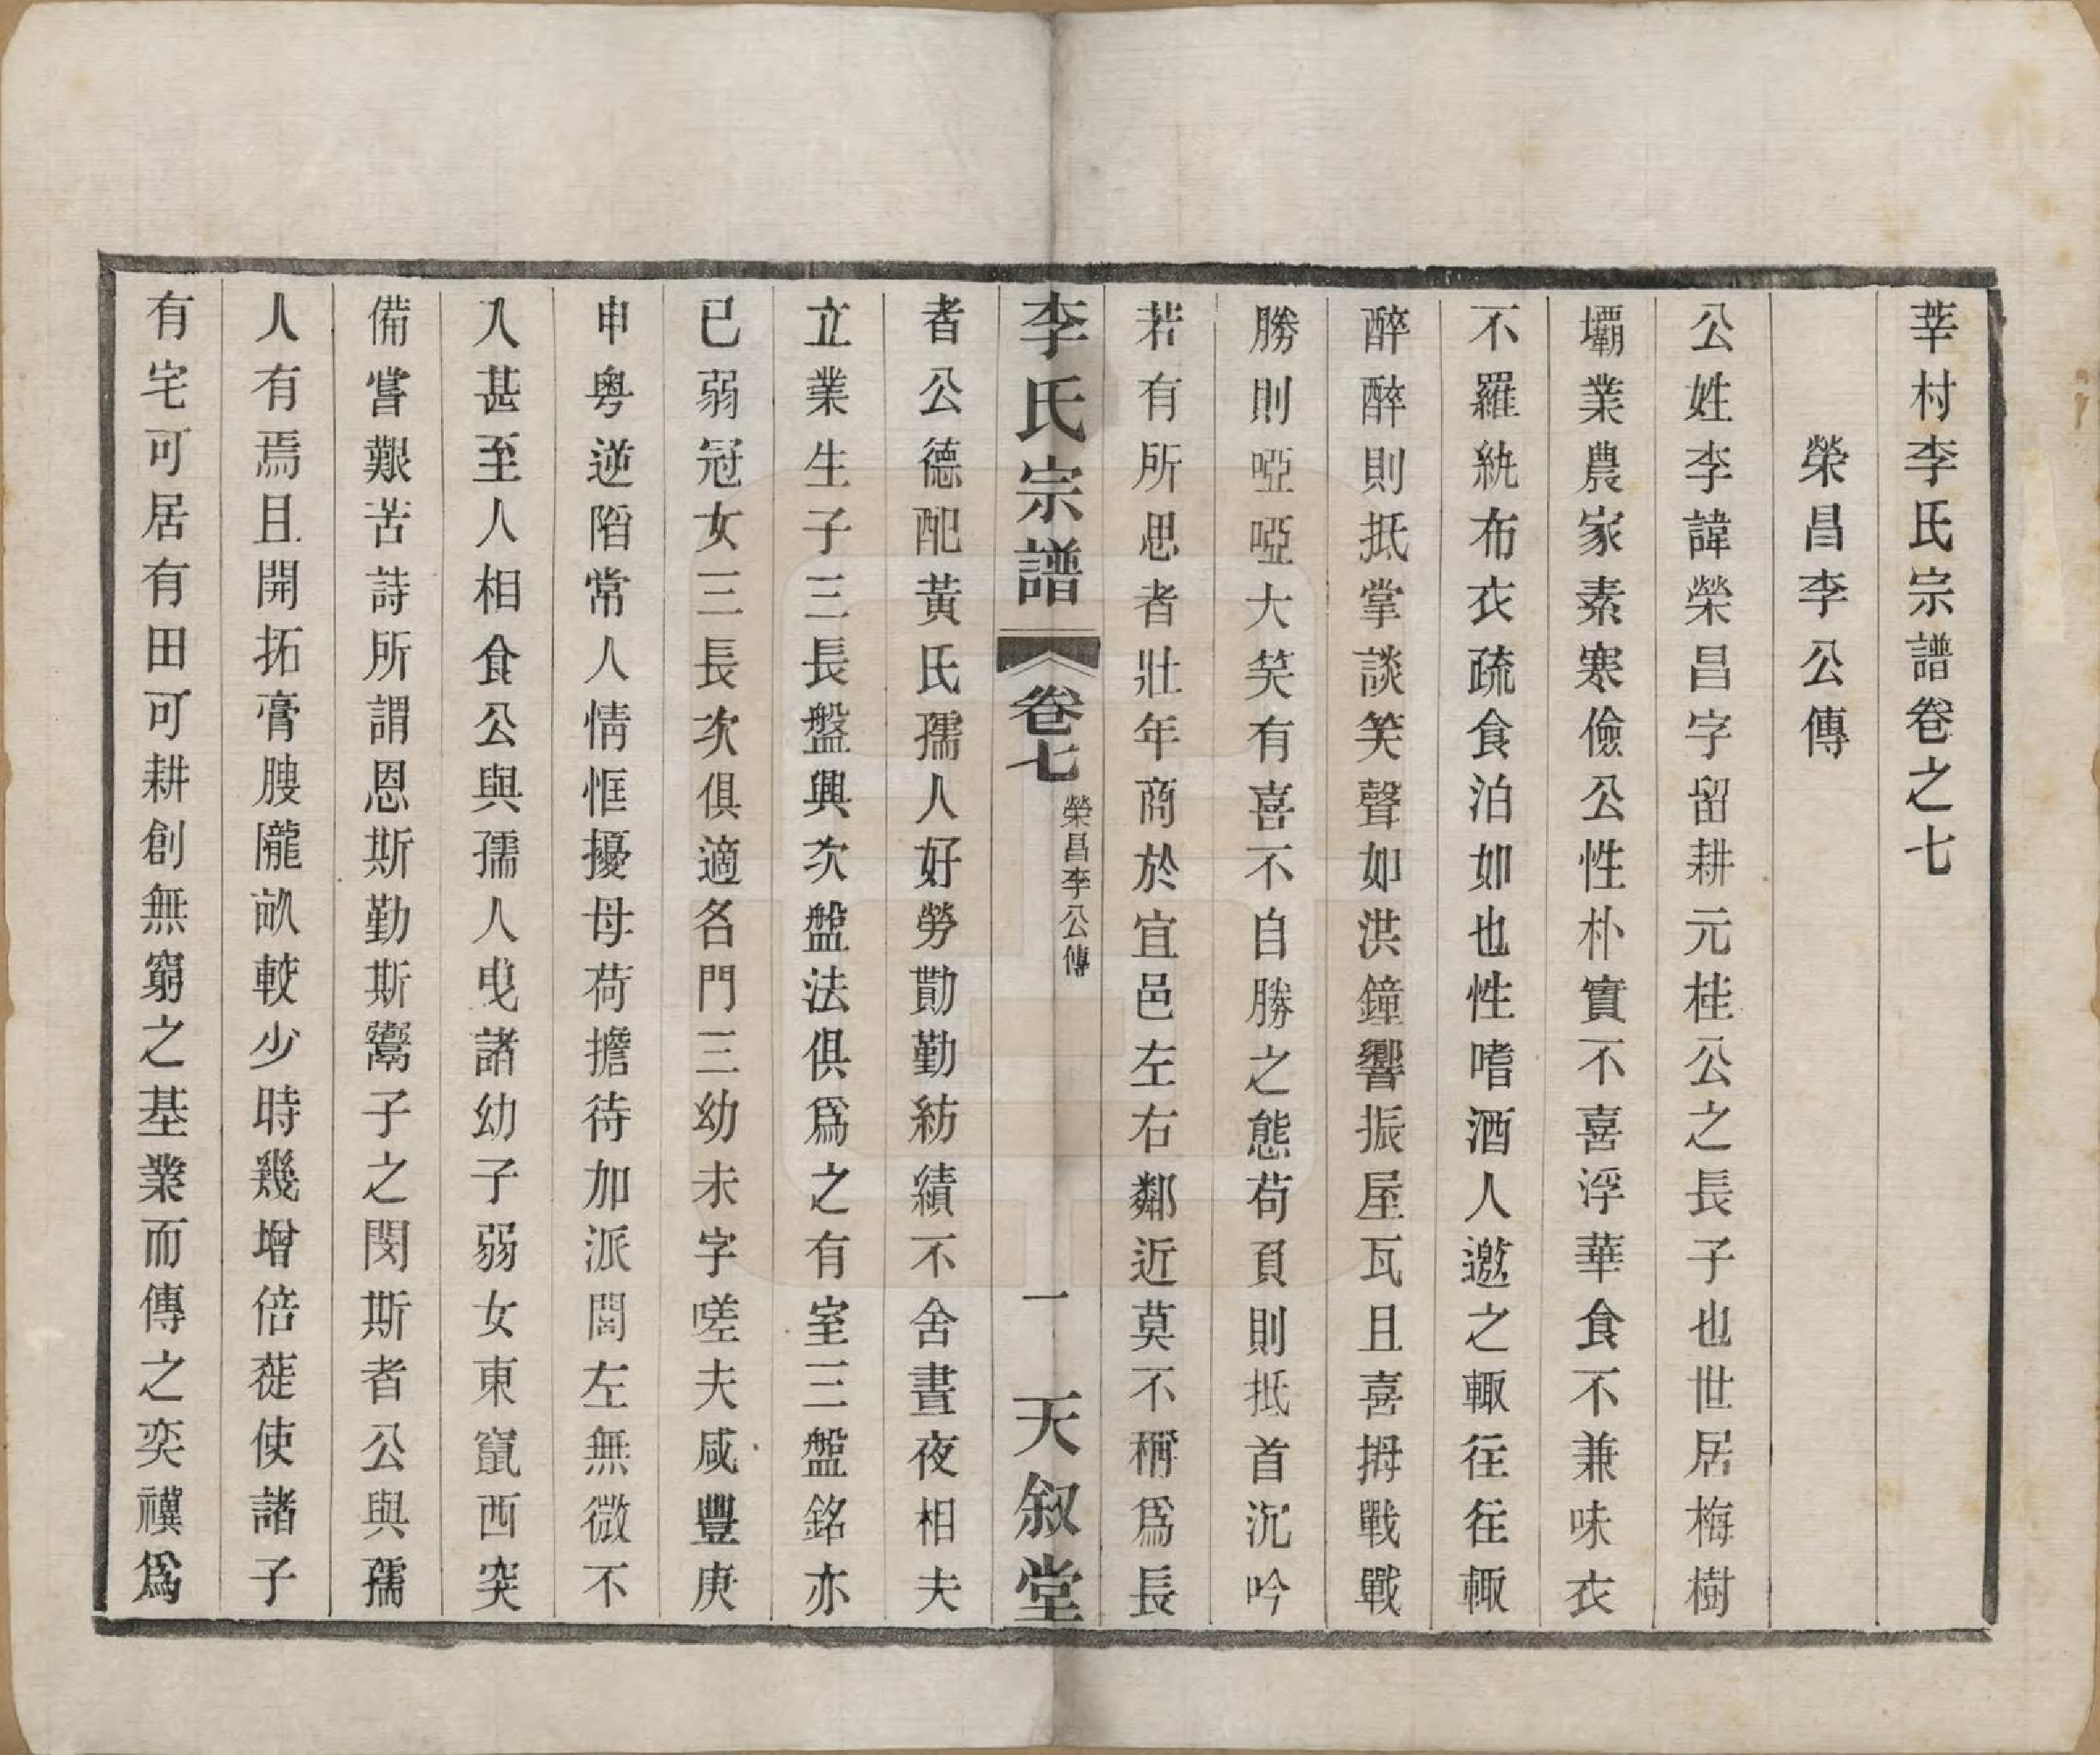 莘村李氏宗譜卷之七
榮昌李公傳
公姓李諱榮昌字留耕元桂公之長子也世居梅樹
壩業農家素寒儉公性朴實不喜浮華食不兼味衣
不羅紈布衣疏食泊如也性嗜酒人邀之輙往往輙
醉醉則抵掌談笑聲如洪鐘響振屋瓦且喜拇戰戰
勝則啞啞大笑有喜不自勝之態苟負則抵首沉吟
若有所思者壯年商於宜邑左右鄰近莫不稱爲長
李氏宗譜
卷七
榮昌李公傳
一
天叙堂
者公德配黃氏孺人好勞勩勤紡績不舍晝夜相夫
立業生子三長盤興次盤法俱爲之有室三盤銘亦
已弱冠女三長次俱適名門三幼未字嗟夫咸豐庚
申粵逆陷常人情恇擾母荷擔待加派閭左無微不
入甚至人相食公與孺人曵諸幼子弱女東竄西突
備嘗艱苦詩所謂恩斯勤斯鬻子之閔斯者公與孺
人有焉且開拓膏腴隴畝較少時幾增倍蓰使諸子
有宅可居有田可耕創無窮之基業而傳之奕禩爲